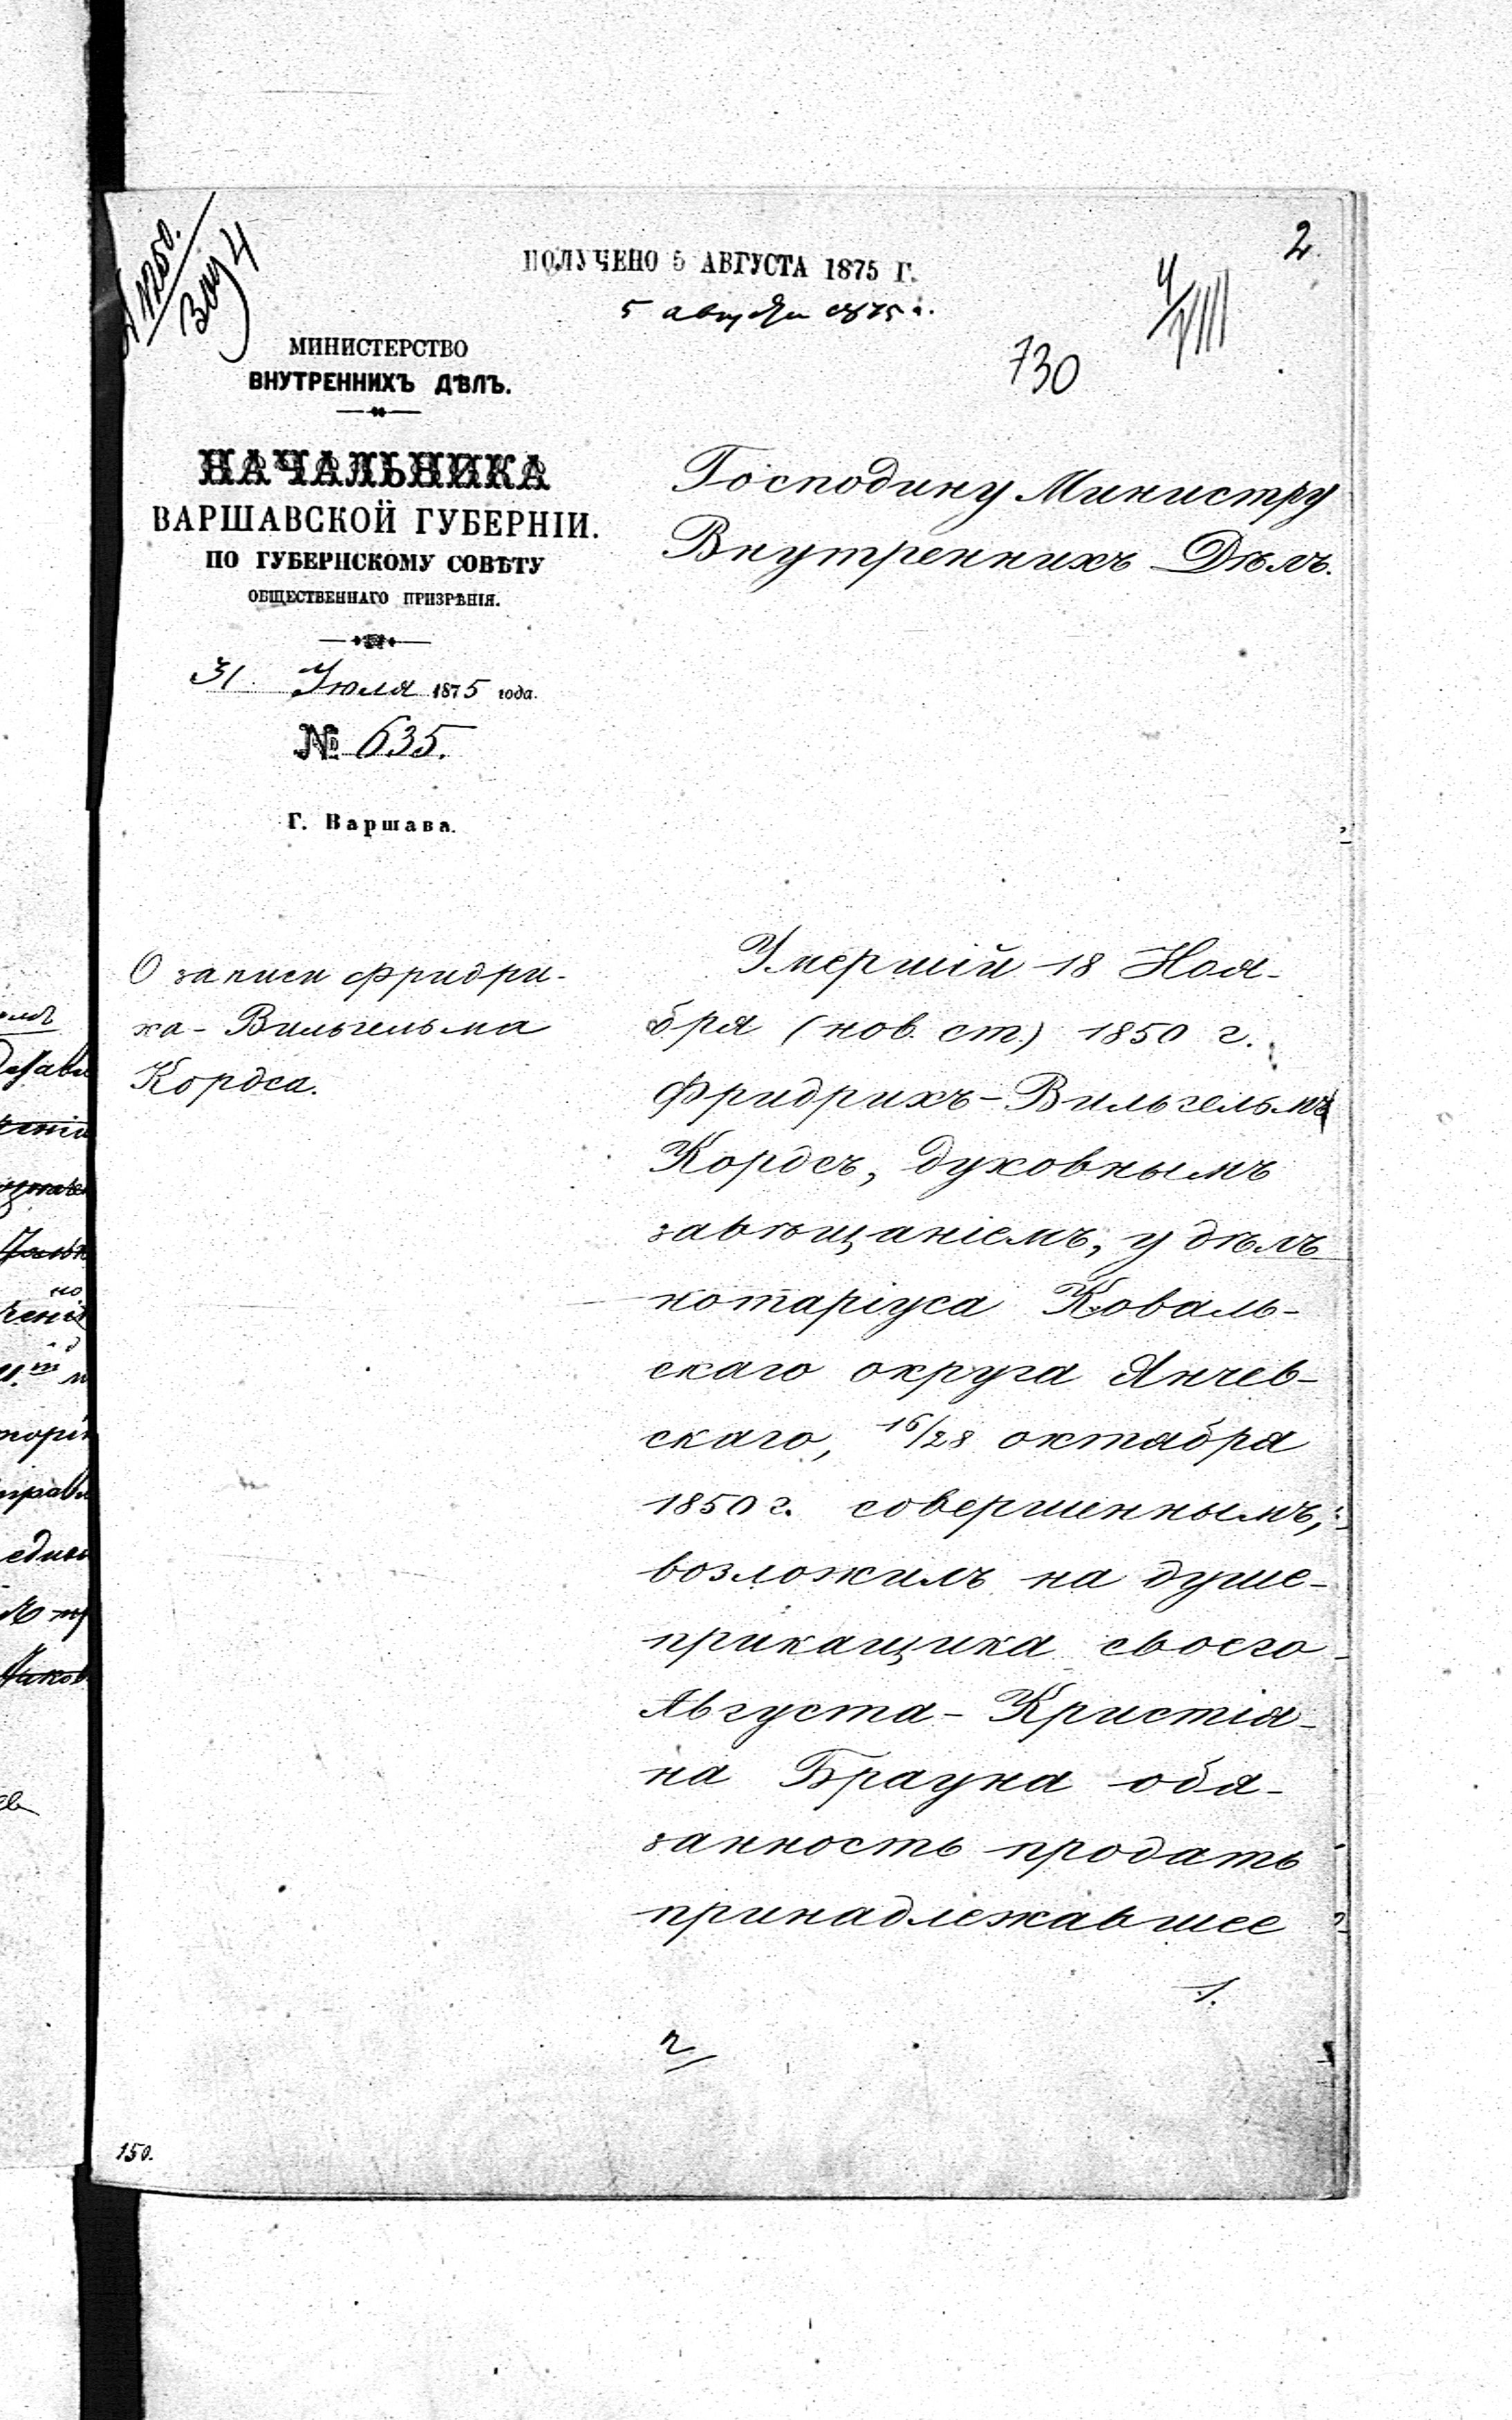 2.
ПОЛУЧЕНО 5 АВГУСТА 1875 Г.
5 августа 1875 г.
4/VIII
730
МИНИСТЕРСТВО
ВНУТРЕННИХЪ ДѢЛЪ.
НАЧАЛЬНИКА
ВАРШАВСКОЙ ГУБЕРНІИ.
ПО ГУБЕРНСКОМУ СОВѢТУ
ОБЩЕСТВЕННАГО ПРИЗРѢНІЯ.
31 Июля 1875 года.
№ 635.
Г. Варшава.
Господину Министру
Внутреннихъ Дѣлъ.
О записи Фридри-
ха-Вильгельма
Кордса.
Умершій 18 Ноя-
бря (нов. ст.) 1850 г.
Фридрихъ-Вильгельмъ
Кордсъ, духовнымъ
завѣщаніемъ, у дѣлъ
нотаріуса Коваль-
скаго округа Янчев-
скаго, 16/28 октября
1850 г. совершеннымъ,
возложилъ на душе-
прикащика своего
Августа-Кристіа-
на Брауна обя-
занность продать
принадлежавшее
1.
150.